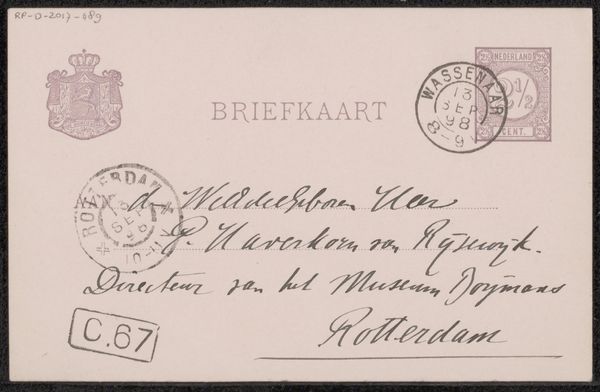 RP-D-2017-089
NEDERLAND
2½
CENT.
WASSENAAR
13
SEP
98
8-9V
BRIEFKAART
ROTTERDAM
13
SEP
98
10-11V
AAN den WelEdelgeboren Heer
P. Haverkorn van Rijsewijk.
Directeur van het Museum Boijmans
Rotterdam
C.67